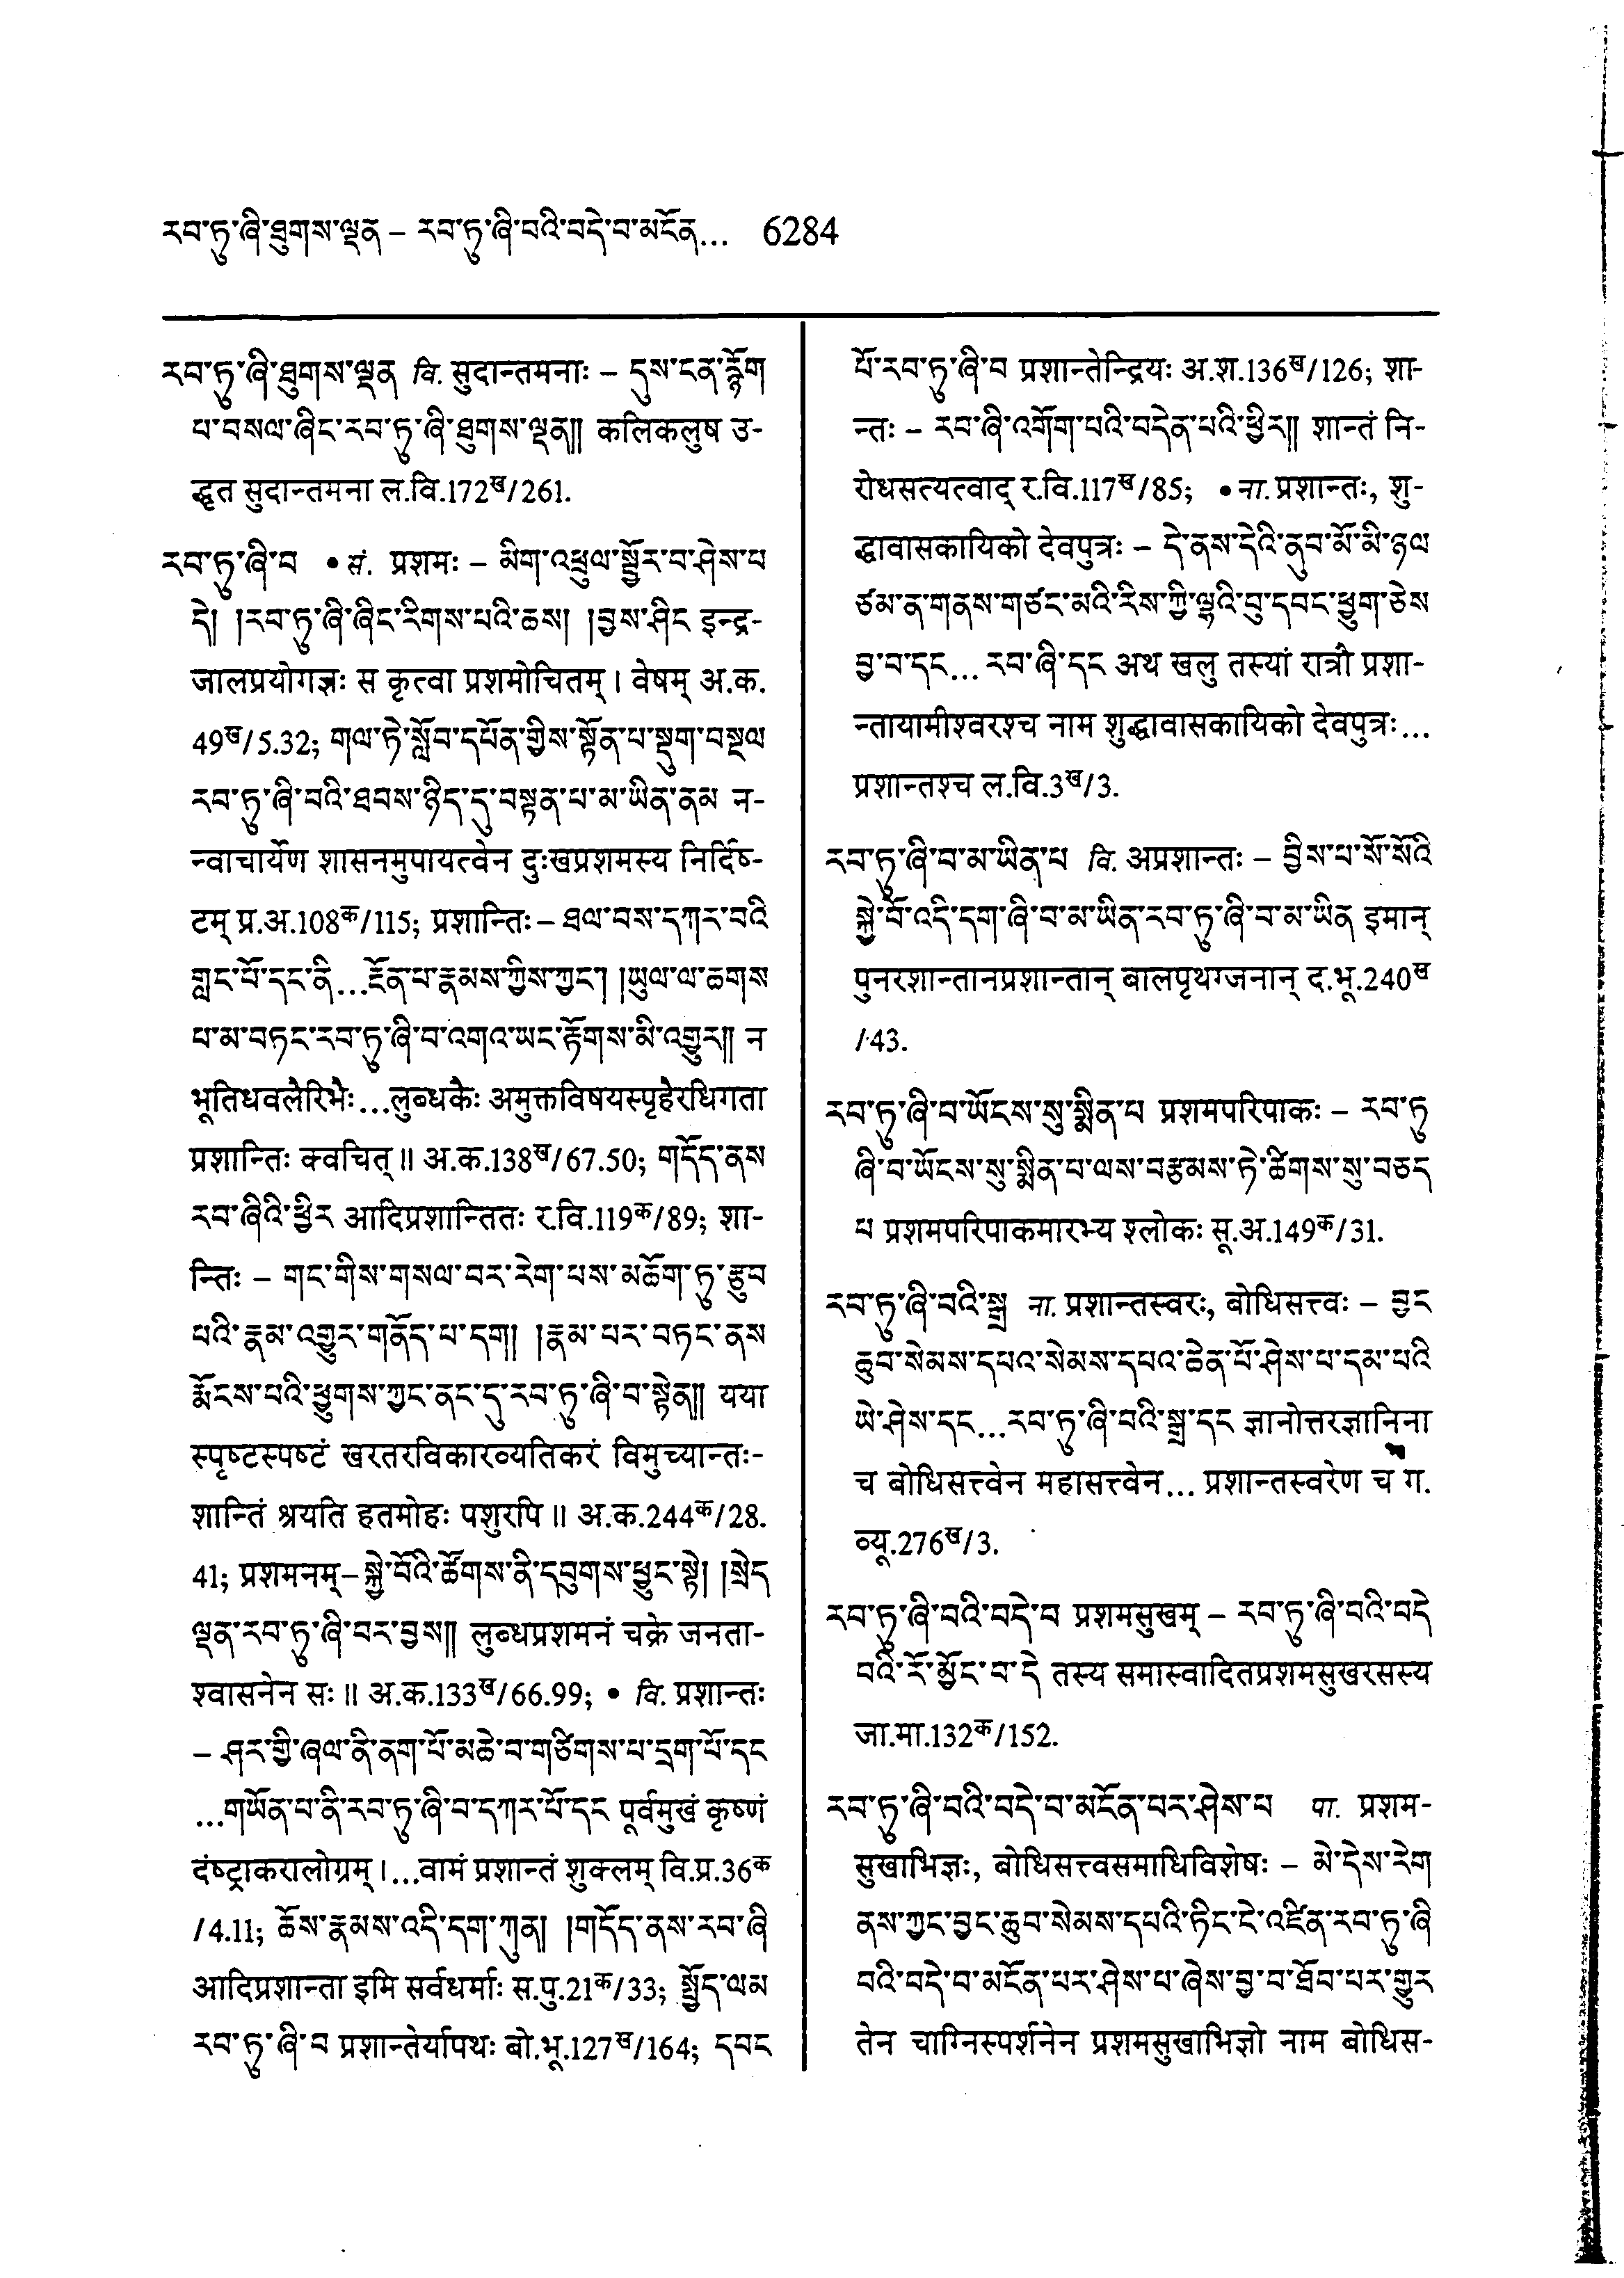 རབ་ཏུ་ཞི་ཐུགས་ལྡན – རབ་ཏུ་ཞི་བའི་བདེ་བ་མངོན... 6284
རབ་ཏུ་ཞི་ཐུགས་ལྡན वि. सुदान्तमनाः – དུས་ངན་རྙོག
པ་བསལ་ཞིང་རབ་ཏུ་ཞི་ཐུགས་ལྡན།། कलिकलुष उ-
द्धृत सुदान्तमना ल.वि.172ख/261.
རབ་ཏུ་ཞི་བ • सं. प्रशमः – མིག་འཕྲུལ་སྦྱོར་བ་ཤེས་པ
དེ། །རབ་ཏུ་ཞི་ཞིང་རིགས་པའི་ཆས། །བྱས་ཤིང इन्द्र-
जालप्रयोगज्ञः स कृत्वा प्रशमोचितम् । वेषम् अ.क.
49ख/5.32; གལ་ཏེ་སློབ་དཔོན་གྱིས་སྟོན་པ་སྡུག་བསྔལ
རབ་ཏུ་ཞི་བའི་ཐབས་ཉིད་དུ་བསྟན་པ་མ་ཡིན་ནམ न-
न्वाचार्येण शासनमुपायत्वेन दुःखप्रशमस्य निर्दिष्-
टम् प्र.अ.108क/115; प्रशान्तिः – ཐལ་བས་དཀར་བའི
གླང་པོ་དང་ནི...རྔོན་པ་རྣམས་ཀྱིས་ཀྱང་། །ཡུལ་ལ་ཆགས
པ་མ་བཏང་རབ་ཏུ་ཞི་བ་འགའ་ཡང་རྟོགས་མི་འགྱུར།། न
भूतिधवलैरिभैः...लुब्धकैः अमुक्तविषयस्पृहैरधिगता
प्रशान्तिः क्वचित् ॥ अ.क.138ख/67.50; གདོད་ནས
རབ་ཞིའི་ཕྱིར आदिप्रशान्तितः र.वि.119क/89; शा-
न्तिः – གང་གིས་གསལ་བར་རེག་པས་མཆོག་ཏུ་རྩུབ
པའི་རྣམ་འགྱུར་གནོད་པ་དག། །རྣམ་པར་བཏང་ནས
རྨོངས་པའི་ཕྱུགས་ཀྱང་ནང་དུ་རབ་ཏུ་ཞི་བ་སྟེན།། यया
स्पृष्टस्पष्टं खरतरविकारव्यतिकरं विमुच्यान्तः-
शान्तिं श्रयति हतमोहः पशुरपि ॥ अ.क.244क/28.
41; प्रशमनम् – སྐྱེ་བོའི་ཚོགས་ནི་དབུགས་ཕྱུང་སྟེ། །སྲེད
ལྡན་རབ་ཏུ་ཞི་བར་བྱས།། लुब्धप्रशमनं चक्रे जनता-
श्वासनेन सः ॥ अ.क.133ख/66.99; • वि. प्रशान्तः
– ཤར་གྱི་ཞལ་ནི་ནག་པོ་མཆེ་བ་གཙིགས་པ་དྲག་པོ་དང
...གཡོན་པ་ནི་རབ་ཏུ་ཞི་བ་དཀར་པོ་དང पूर्वमुखं कृष्णं
दंष्ट्राकरालोग्रम् ।...वामं प्रशान्तं शुक्लम् वि.प्र.36क
/4.11; ཆོས་རྣམས་འདི་དག་ཀུན། །གདོད་ནས་རབ་ཞི
आदिप्रशान्ता इमि सर्वधर्माः स.पु.21क/33; སྤྱོད་ལམ
རབ་ཏུ་ཞི་བ प्रशान्तेर्यापथः बो.भू.127ख/164; དབང
པོ་རབ་ཏུ་ཞི་བ प्रशान्तेन्द्रियः अ.श.136ख/126; शा-
न्तः – རབ་ཞི་འགོག་པའི་བདེན་པའི་ཕྱིར།། शान्तं नि-
रोधसत्यत्वाद् र.वि.117ख/85; • ना. प्रशान्तः, शु-
द्धावासकायिको देवपुत्रः – དེ་ནས་དེའི་ནུབ་མོ་མི་ཉལ
ཙམ་ན་གནས་གཙང་མའི་རིས་ཀྱི་ལྷའི་བུ་དབང་ཕྱུག་ཅེས
བྱ་བ་དང... རབ་ཞི་དང अथ खलु तस्यां रात्रौ प्रशा-
न्तायामीश्वरश्च नाम शुद्धावासकायिको देवपुत्रः...
प्रशान्तश्च ल.वि.3ख/3.
རབ་ཏུ་ཞི་བ་མ་ཡིན་པ वि. अप्रशान्तः – བྱིས་པ་སོ་སོའི
སྐྱེ་བོ་འདི་དག་ཞི་བ་མ་ཡིན་རབ་ཏུ་ཞི་བ་མ་ཡིན इमान्
पुनरशान्तानप्रशान्तान् बालपृथग्जनान् द.भू.240ख
/43.
རབ་ཏུ་ཞི་བ་ཡོངས་སུ་སྨིན་པ प्रशमपरिपाकः – རབ་ཏུ
ཞི་བ་ཡོངས་སུ་སྨིན་པ་ལས་བརྩམས་ཏེ་ཚིགས་སུ་བཅད
པ प्रशमपरिपाकमारभ्य श्लोकः सू.अ.149क/31.
རབ་ཏུ་ཞི་བའི་སྒྲ ना. प्रशान्तस्वरः, बोधिसत्त्वः – བྱང
ཆུབ་སེམས་དཔའ་སེམས་དཔའ་ཆེན་པོ་ཤེས་པ་དམ་པའི
ཡེ་ཤེས་དང...རབ་ཏུ་ཞི་བའི་སྒྲ་དང ज्ञानोत्तरज्ञानिना
च बोधिसत्त्वेन महासत्त्वेन... प्रशान्तस्वरेण च ग.
व्यू.276ख/3.
རབ་ཏུ་ཞི་བའི་བདེ་བ प्रशमसुखम् – རབ་ཏུ་ཞི་བའི་བདེ
བའི་རོ་མྱོང་བ་དེ तस्य समास्वादितप्रशमसुखरसस्य
जा.मा.132क/152.
རབ་ཏུ་ཞི་བའི་བདེ་བ་མངོན་པར་ཤེས་པ पा. प्रशम-
सुखाभिज्ञः, बोधिसत्त्वसमाधिविशेषः – མེ་དེས་རེག
ནས་ཀྱང་བྱང་ཆུབ་སེམས་དཔའི་ཏིང་ངེ་འཛིན་རབ་ཏུ་ཞི
བའི་བདེ་བ་མངོན་པར་ཤེས་པ་ཞེས་བྱ་བ་ཐོབ་པར་གྱུར
तेन चाग्निस्पर्शनेन प्रशमसुखाभिज्ञो नाम बोधिस-